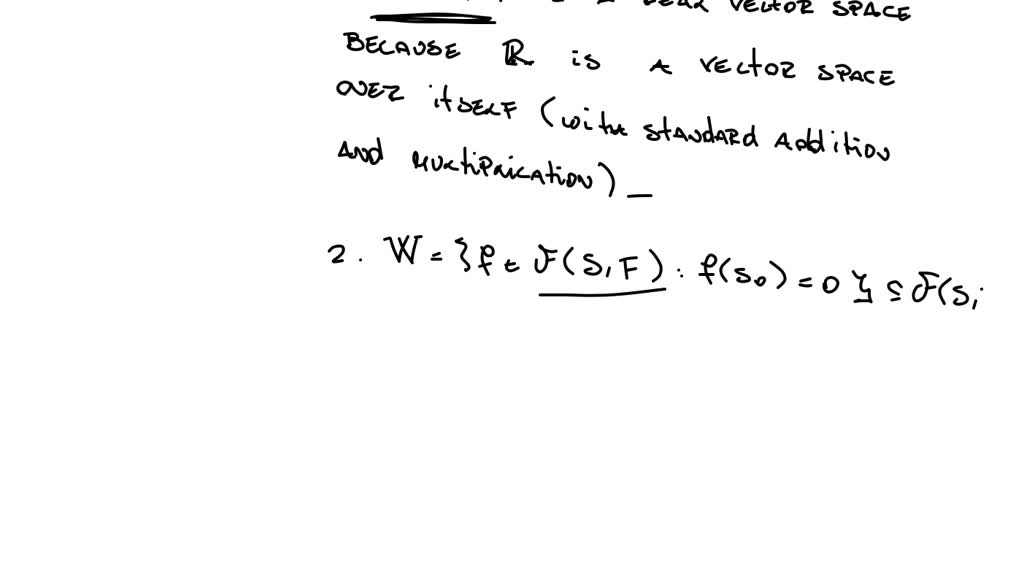 VECTOR SPACE
BECAUSE ℝ is A VECTOR SPACE
OVER itSELF (with STANDARD Addition
And MultiPlication) _
2. W = { f ∈ F(S, F) : f(s₀) = 0 } ⊆ F(S,